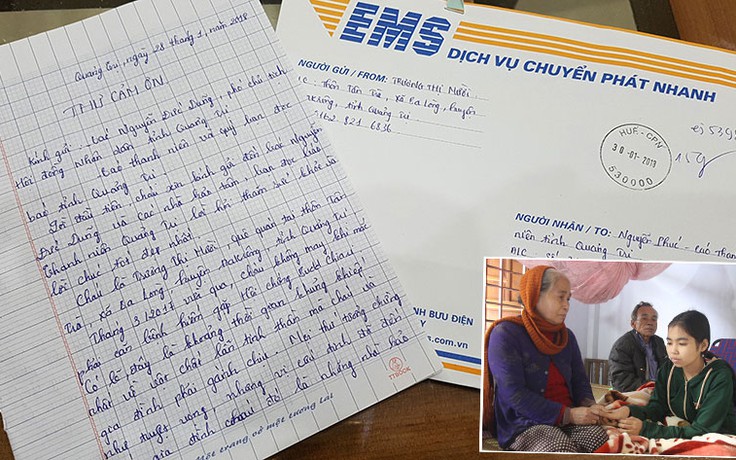 Quảng Trị, ngày 28 tháng 1, 2018
THƯ CẢM ƠN
Kính gửi: - Bác Nguyễn Đức Dũng, phó chủ tịch
Hội đồng Nhân dân tỉnh Quảng Trị
- Báo thanh niên và quý bạn đọc
báo tỉnh Quảng Trị.
Lời đầu tiên, cháu xin kính gửi đến bác Nguyễn
Đức Dũng và các nhà hảo tâm, bạn đọc báo
thanh niên Quảng Trị lời hỏi thăm sức khỏe và
lời chúc tốt đẹp nhất.
Cháu là Trương Thị Mười, quê quán tại thôn Tân
Trà, xã Ba Lòng, huyện Đakrông, tỉnh Quảng Trị
Tháng 3/2017 vừa qua, cháu không may khi mắc
phải căn bệnh hiểm gặp Hội chứng
Có lẽ đây là khoảng thời gian khủng khiếp
nhất về vật chất lẫn tinh thần mà cháu và
gia đình phải gánh chịu. Mọi thứ tưởng chừng
như tuyệt vọng, nhưng vị cứu tinh đã đến
gia đình cháu đó là những nhà hảo
TTBOOK
Một trang vở một tương lai
EMS
DỊCH VỤ CHUYỂN PHÁT NHANH
NGƯỜI GỬI / FROM: TRƯƠNG THỊ MƯỜI
Đ/C: Thôn Tân Trà, xã Ba Lòng, huyện
Đakrông, tỉnh Quảng Trị
821 6836
HUE-CPN
30-01-2018
530000
NGƯỜI NHẬN / TO: Nguyễn Phúc - Báo Thanh
niên tỉnh Quảng Trị
Đ/C
NH BƯU ĐIỆN
s.com.vn